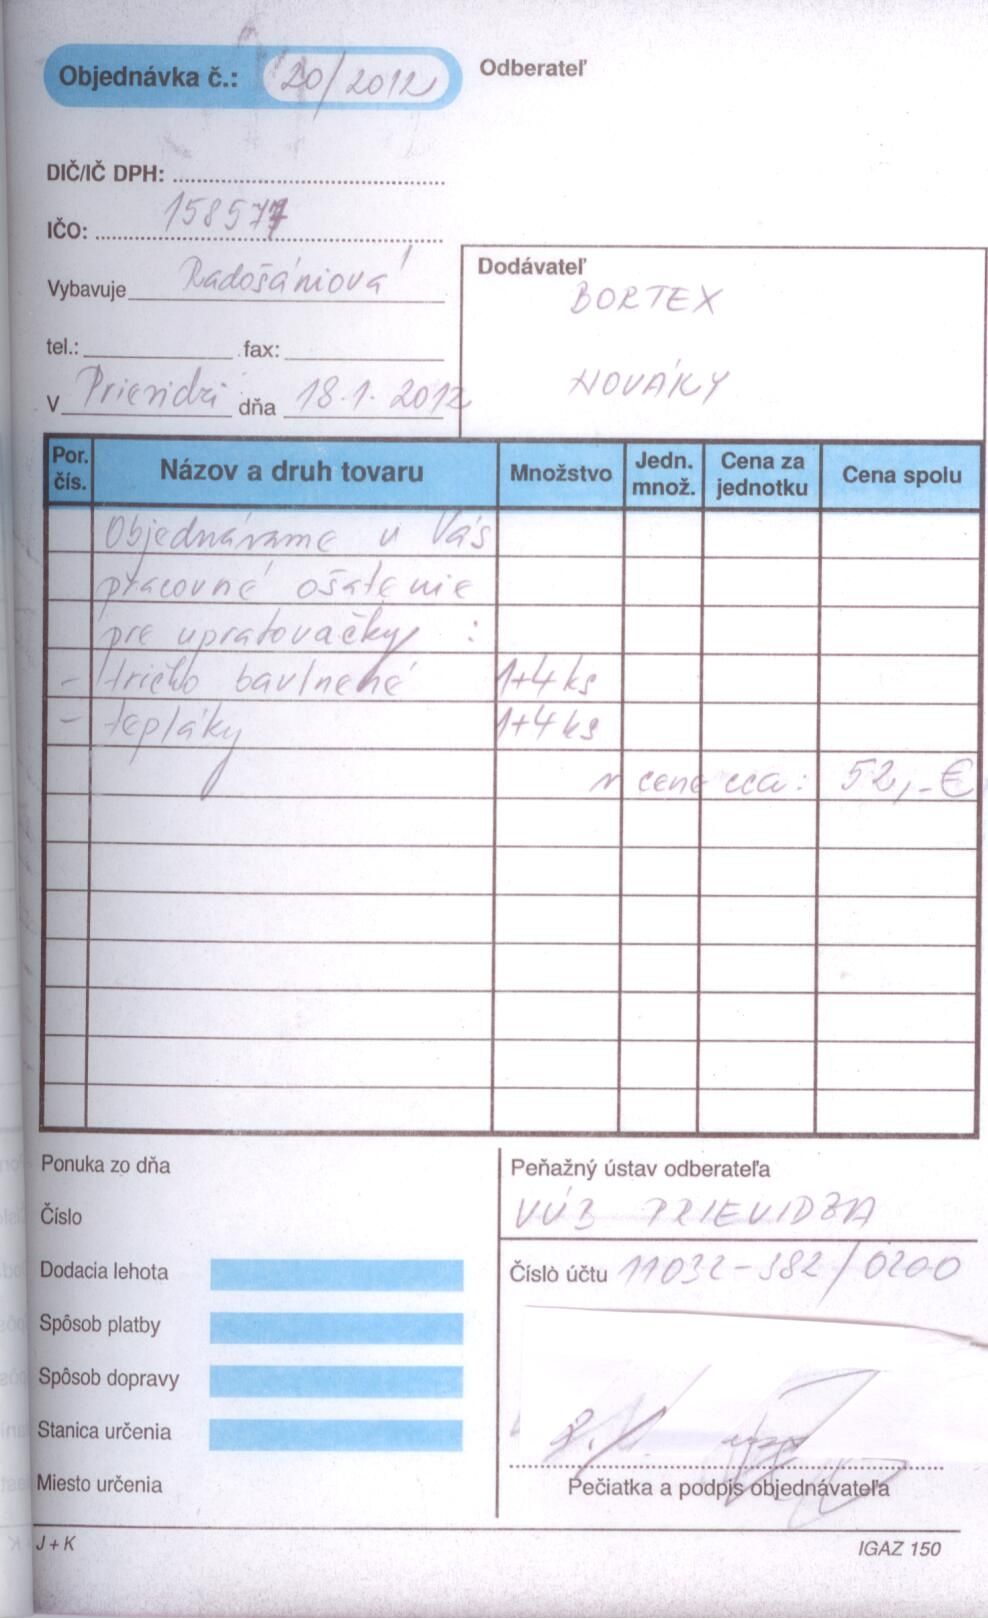 Objednávka č.: 20/2012
Odberateľ
DIČ/IČ DPH:
IČO: 158577
Vybavuje Radošániová
tel.: fax:
V Prievidzi dňa 18.1.2012
Dodávateľ
BORTEX
NOVÁKY
Por. čís. Názov a druh tovaru Množstvo Jedn. množ. Cena za jednotku Cena spolu
Objednávame u Vás
pracovné ošatenie
pre upratovačky :
- tričko bavlnené 1+4 ks
- tepláky 1+4 ks
v cene cca: 52,-€
Ponuka zo dňa
Číslo
Dodacia lehota
Spôsob platby
Spôsob dopravy
Stanica určenia
Miesto určenia
Peňažný ústav odberateľa
VÚB PRIEVIDZA
Číslo účtu 11032-382/0200
Pečiatka a podpis objednávateľa
J + K
IGAZ 150